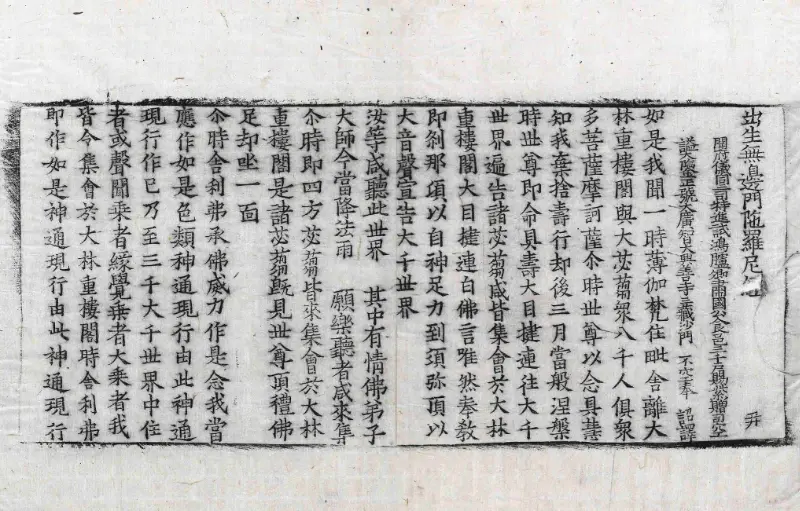 出生無邊門陁羅尼經 弁
開府儀同三司特進試鴻臚卿肅國公食邑三千戶賜紫贈司空
謚大鑒正號大廣智大興善寺三藏沙門 不空奉 詔譯
如是我聞一時薄伽梵住毗舍離大
林重樓閣與大苾蒭衆八千人俱衆
多菩薩摩訶薩尒時世尊以念具慧
知我棄捨壽行却後三月當般涅槃
時世尊即命具壽大目揵連往大千
世界遍告諸苾蒭咸皆集會於大林
重樓閣大目揵連白佛言唯然奉教
即剎那頃以自神足力到須弥頂以
大音聲宣告大千世界
汝等咸聽此世界 其中有情佛弟子
大師今當降法雨 願樂聽者咸來集
尒時即四方苾蒭皆來集會於大林
重樓閣是諸苾蒭旣見世尊頂禮佛
足却坐一面
尒時舍利弗承佛威力作是念我當
應作如是色類神通現行由此神通
現行作已乃至三千大千世界中住
者或聲聞乘者緣覺乘者大乘者我
皆令集會於大林重樓閣時舍利弗
即作如是神通現行由此神通現行